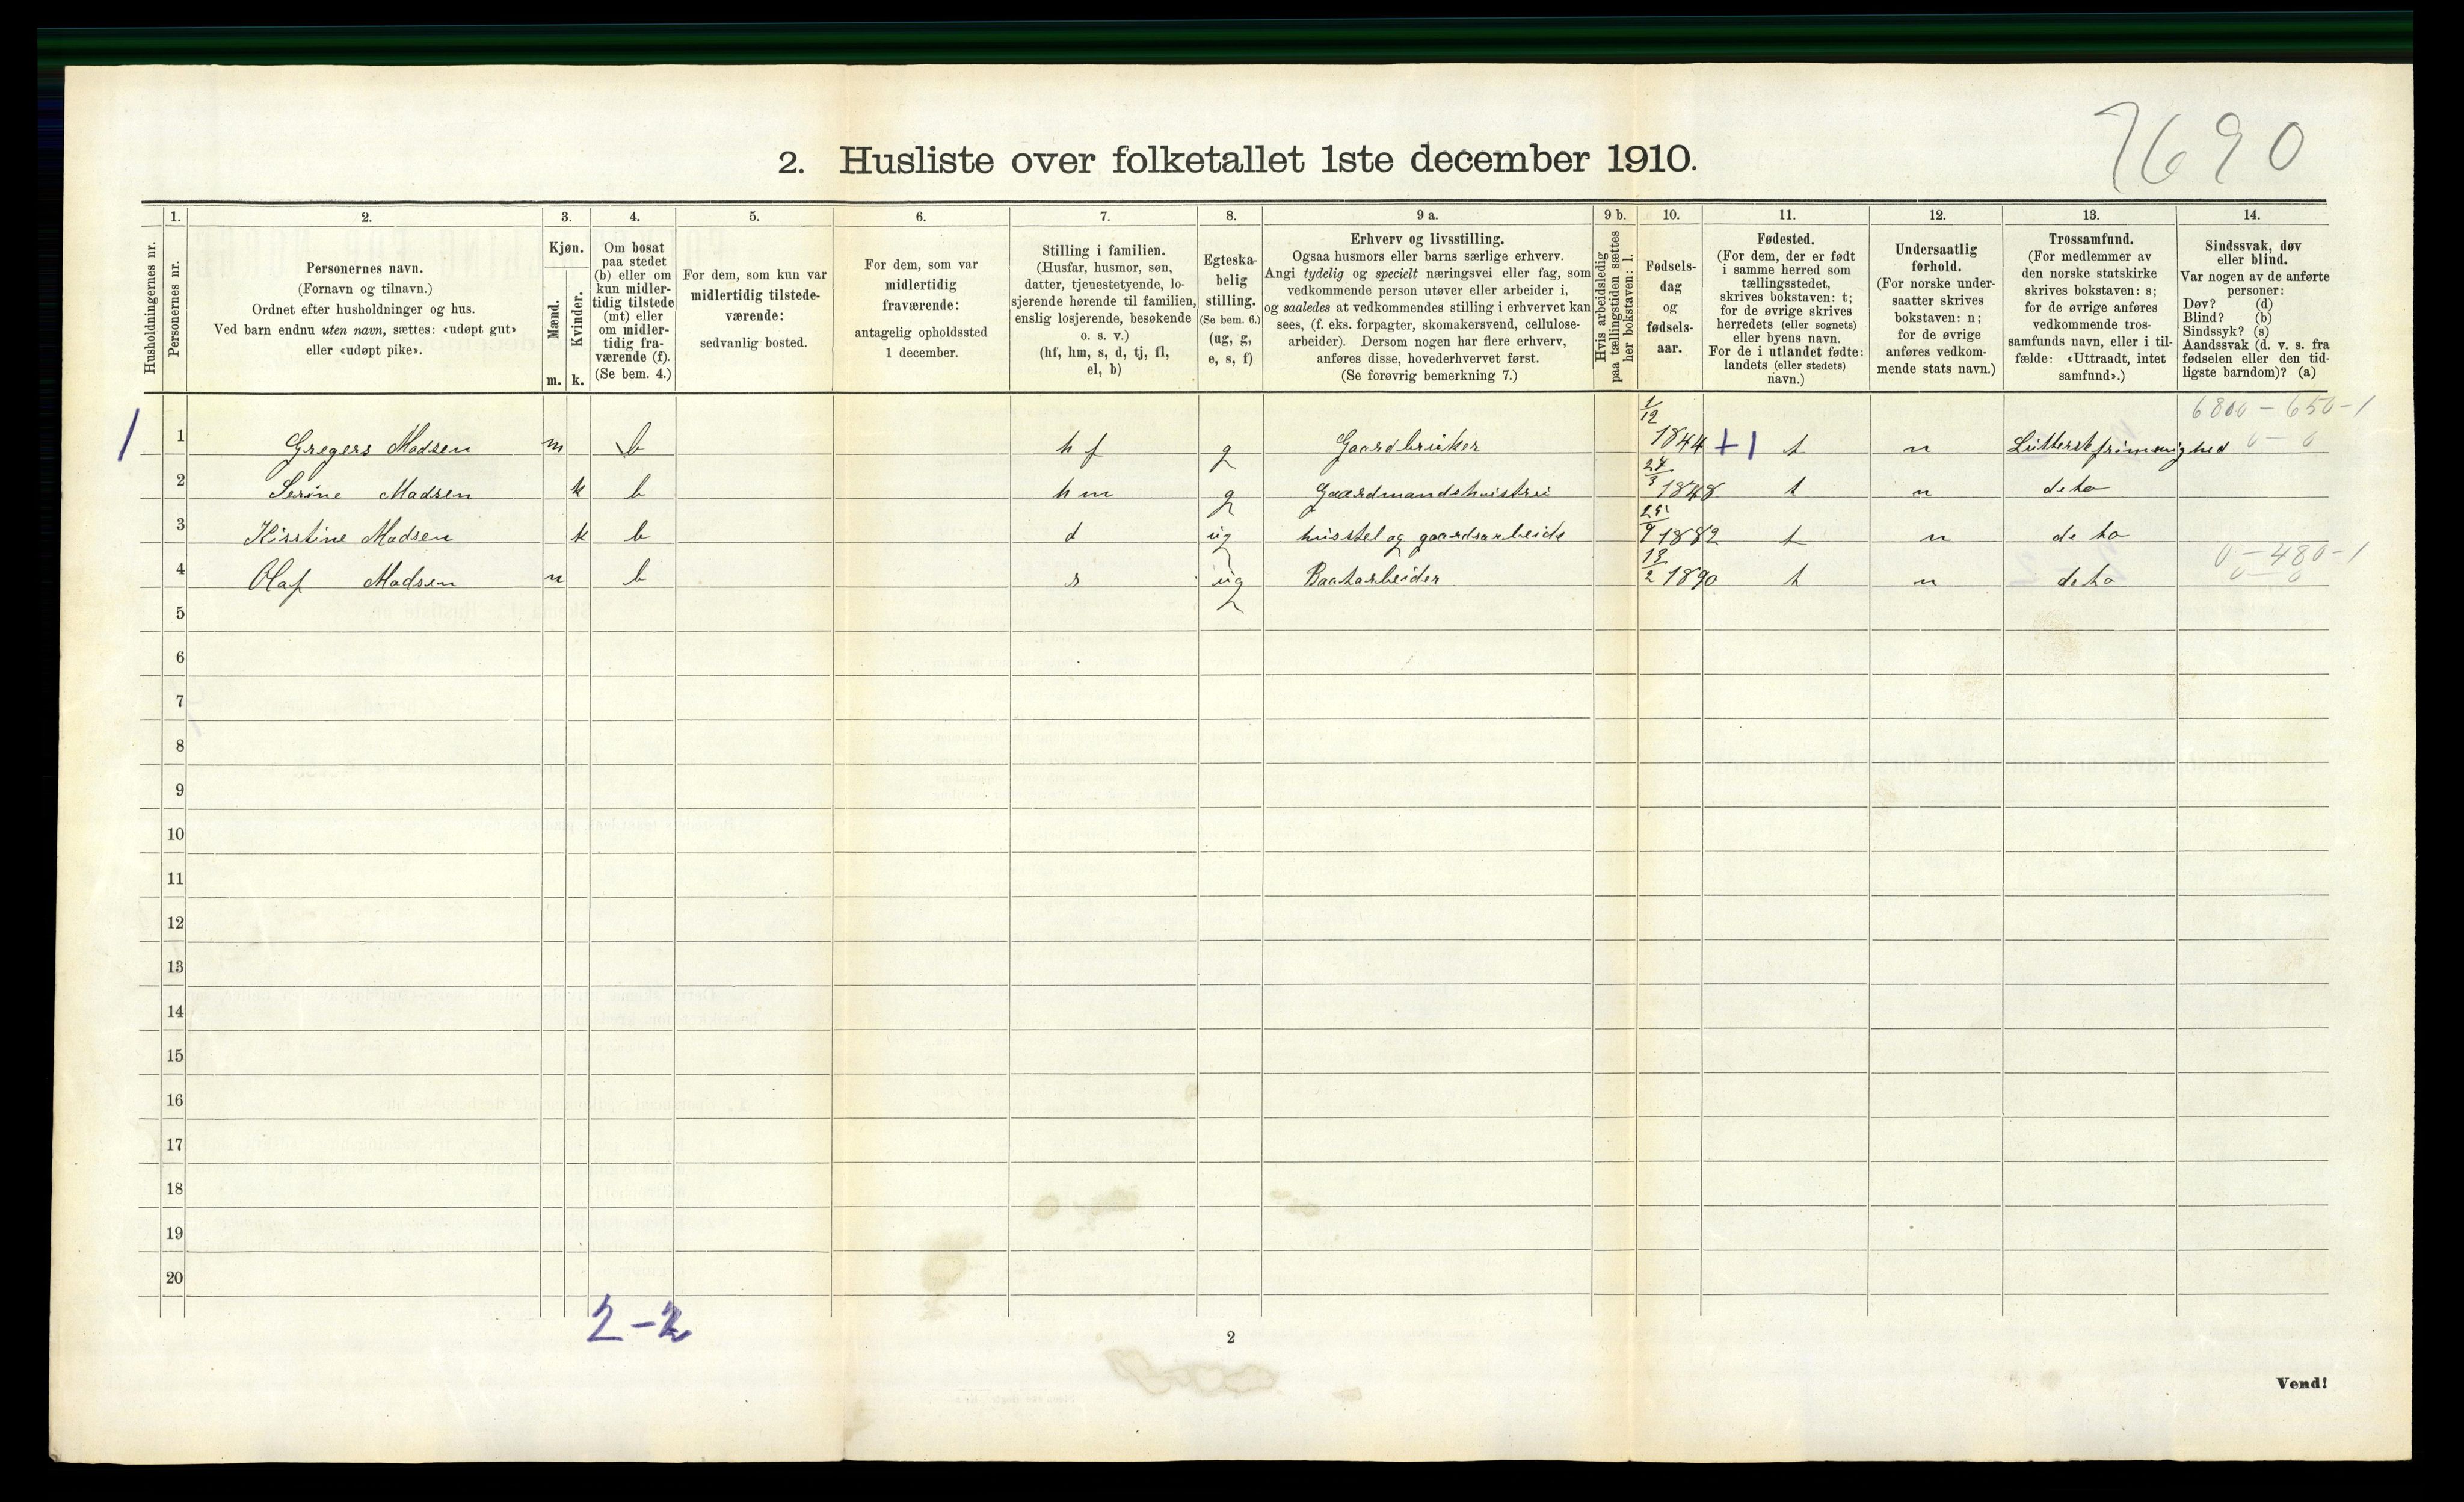 7690
2. Husliste over folketallet 1ste december 1910.
1. 2. 3. 4. 5. 6. 7. 8. 9 a. 9 b. 10. 11. 12. 13. 14.
Husholdningernes nr.
Personernes nr.
Personernes navn.
(Fornavn og tilnavn.)
Ordnet efter husholdninger og hus.
Ved barn endnu uten navn, sættes: «udøpt gut»
eller «udøpt pike».
Kjøn.
Mænd.
Kvinder.
m. k.
Om bosat
paa stedet
(b) eller om
kun midler-
tidig tilstede
(mt) eller
om midler-
tidig fra-
værende (f).
(Se bem. 4.)
For dem, som kun var
midlertidig tilstede-
værende:
sedvanlig bosted.
For dem, som var
midlertidig
fraværende:
antagelig opholdssted
1 december.
Stilling i familien.
(Husfar, husmor, søn,
datter, tjenestetyende, lo-
sjerende hørende til familien,
enslig losjerende, besøkende
o. s. v.)
(hf, hm, s, d, tj, fl,
el, b)
Egteska-
belig
stilling.
(Se bem. 6.)
(ug, g,
e, s, f)
Erhverv og livsstilling.
Ogsaa husmors eller barns særlige erhverv.
Angi tydelig og specielt næringsvei eller fag, som
vedkommende person utøver eller arbeider i,
og saaledes at vedkommendes stilling i erhvervet kan
sees, (f. eks. forpagter, skomakersvend, cellulose-
arbeider). Dersom nogen har flere erhverv,
anføres disse, hovederhvervet først.
(Se forøvrig bemerkning 7.)
Hvis arbeidsledig
paa tællingstiden sættes
her bokstaven: l.
Fødsels-
dag
og
fødsels-
aar.
Fødested.
(For dem, der er født
i samme herred som
tællingsstedet,
skrives bokstaven: t;
for de øvrige skrives
herredets (eller sognets)
eller byens navn.
For de i utlandet fødte:
landets (eller stedets)
navn.)
Undersaatlig
forhold.
(For norske under-
saatter skrives
bokstaven: n;
for de øvrige
anføres vedkom-
mende stats navn.)
Trossamfund.
(For medlemmer av
den norske statskirke
skrives bokstaven: s;
for de øvrige anføres
vedkommende tros-
samfunds navn, eller i til-
fælde: «Uttraadt, intet
samfund».)
Sindssvak, døv
eller blind.
Var nogen av de anførte
personer:
Døv? (d)
Blind? (b)
Sindssyk? (s)
Aandssvak (d. v. s. fra
fødselen eller den tid-
ligste barndom)? (a)
6800 - 650-1
1 1 Gregers Madsen m b h f g Gaardbruker 1/12 1844 +1 t n 0 - 0
2 Serine Madsen k b h m g Gaardmandshustrui 27/3 1848 t n deto
3 Kisstine Madsen k b d ug husstel og gaardsarbeide 1882 t n deto
0 - 480-1
4 Olaf Madsen m b s ug Baatarbeider 1890 t n deto 0 - 0
5
6
7
8
9
10
11
12
13
14
15
16
17
18
19
20
2-2
2
Vend!